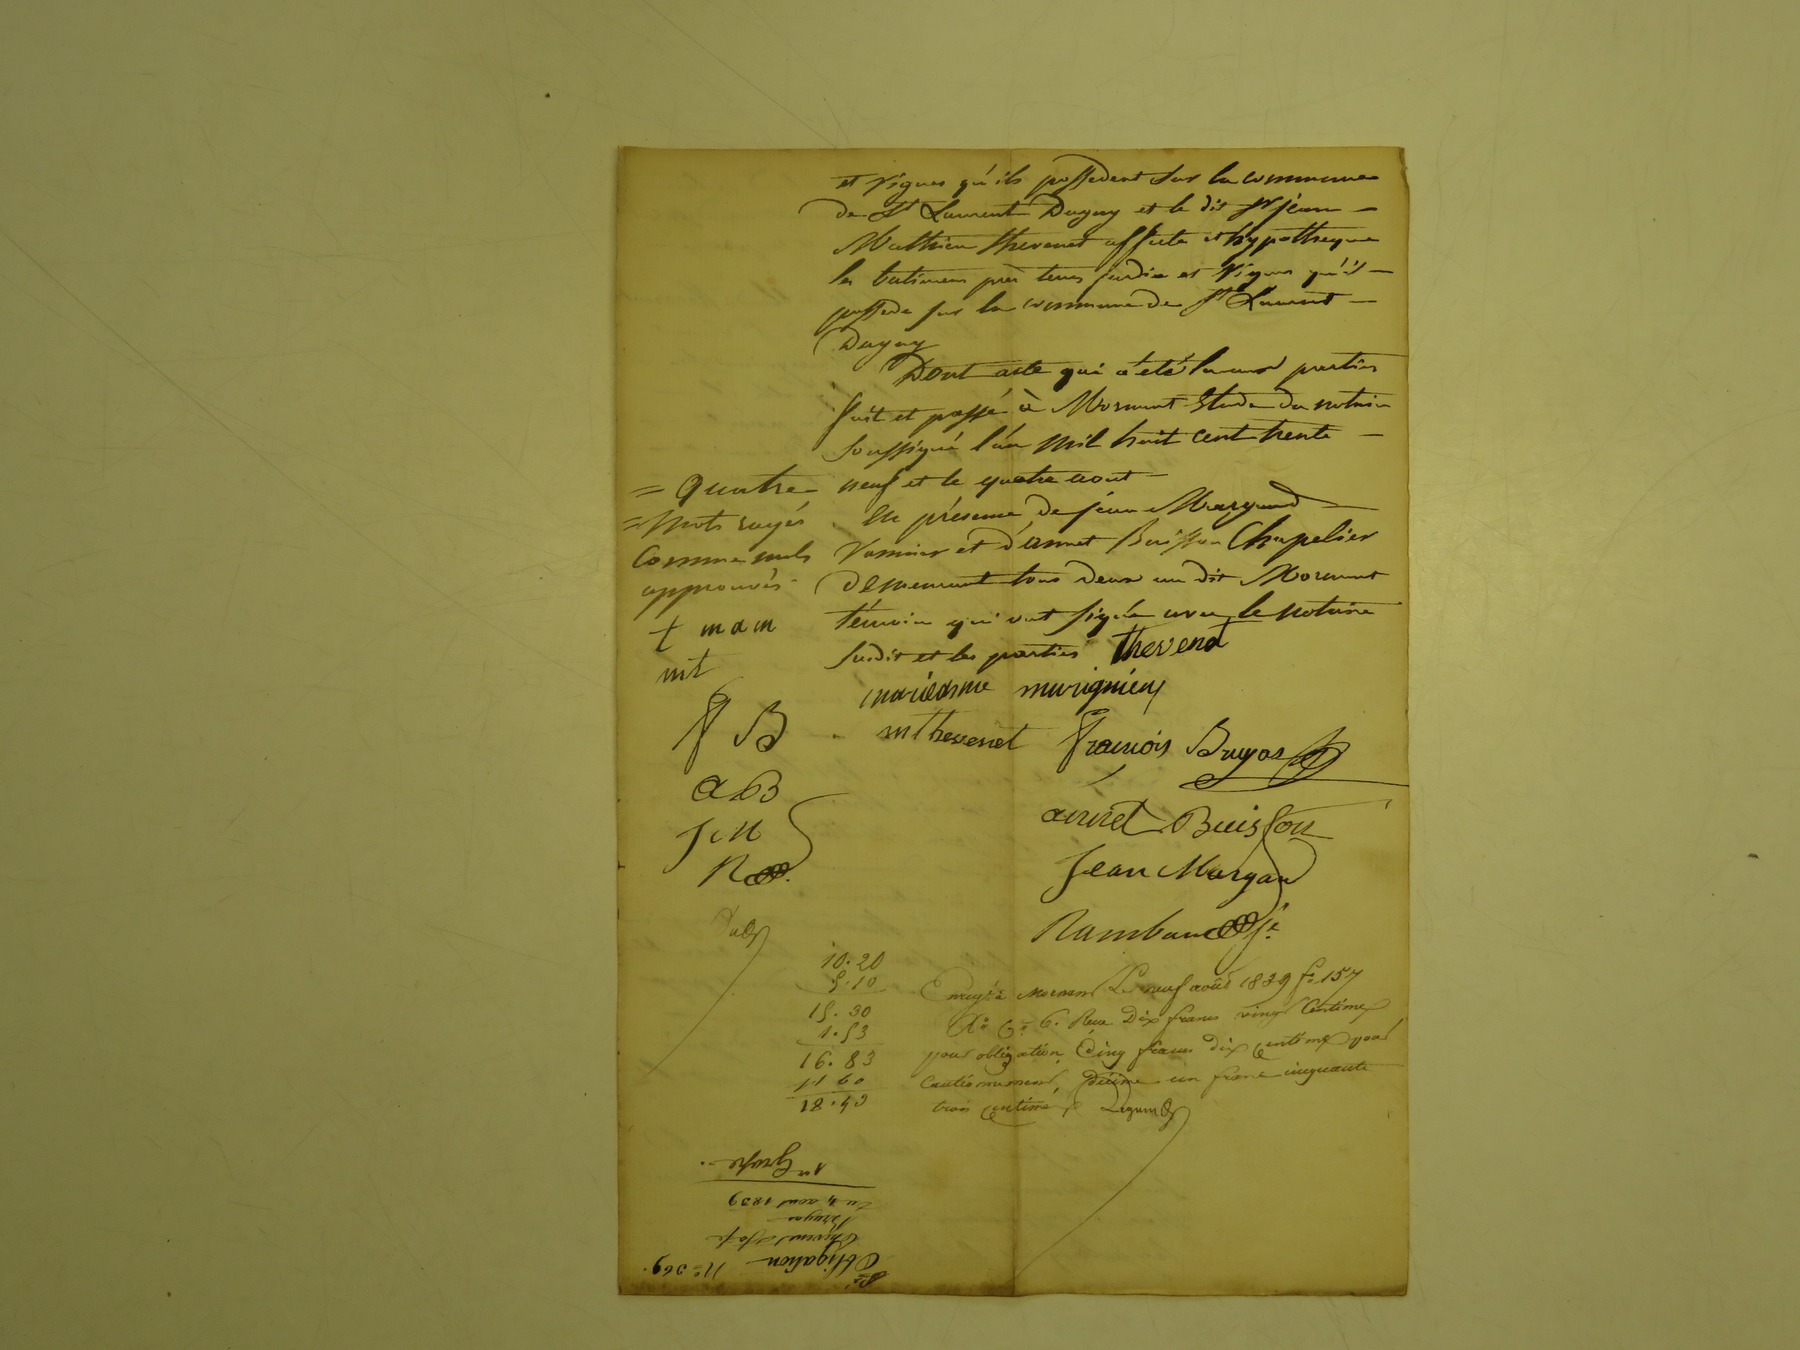 et vignes qu'ils possedent sur la commune
de St Laurent Dagny et le dit Sr jean
Mathieu thevenet affecte et hypotheque
les batimens prés terres jardin et vignes qu'il
possede sur la commune de St Laurent
Dagny
Dont acte qui a été lu aux parties
fait et passé à Mornant Etude du notaire
soussigné l'an mil huit cent trente
neuf et le quatre aout
en présence de jean Margand
Vannier et d'annet Buisson Chapelier
demeurant tous deux au dit Mornant
témoin qui ont signé avec le notaire
susdit et les parties thevenet
= quatre
= mots rayés
comme nuls
approuvés
+ m a m
mt
f B
a B
J M
R
marieanne marignier
m thevenet françois Bruyas
annet Buisson
Jean Margan
Rambaud
10.20
5.10
15.30
1.53
16.83
1.60
18.43
Enregé à mornant Le neuf août 1839 fo 157
Ro Co 6. Reçu Dix francs vingt Centimes
pour obligation, Cinq francs dix centimes pour
cautionnement, décime un franc cinquante
trois centimes
No 369.
Obligation
Thevenet
Bruyas
Du 4 aout 1839
1re Grosse